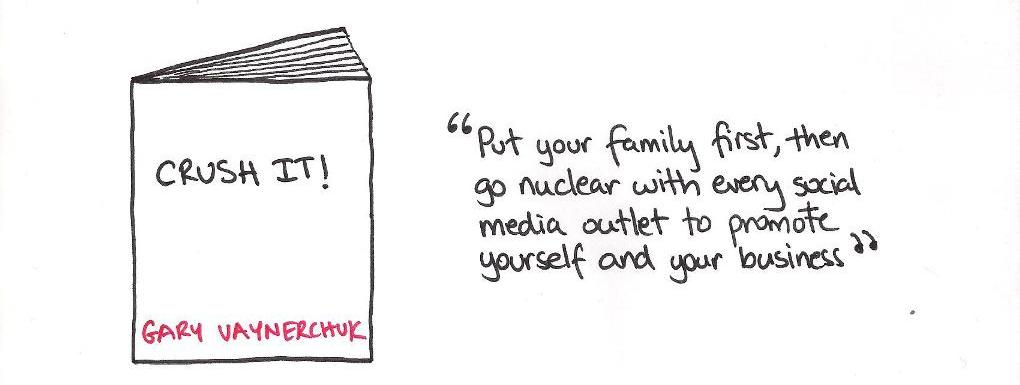 CRUSH IT!
GARY VAYNERCHUK
“Put your family first, then
go nuclear with every social
media outlet to promote
yourself and your business”